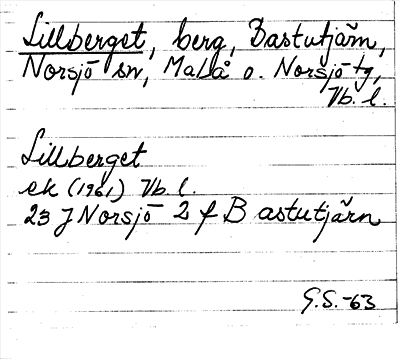 Lillberget, berg, Bastutjärn,
Norsjö sn, Malå o. Norsjö tg,
Vb. l.
Lillberget
ek (1961) Vb. l.
23 J Norsjö 2 f Bastutjärn
G.S.-63